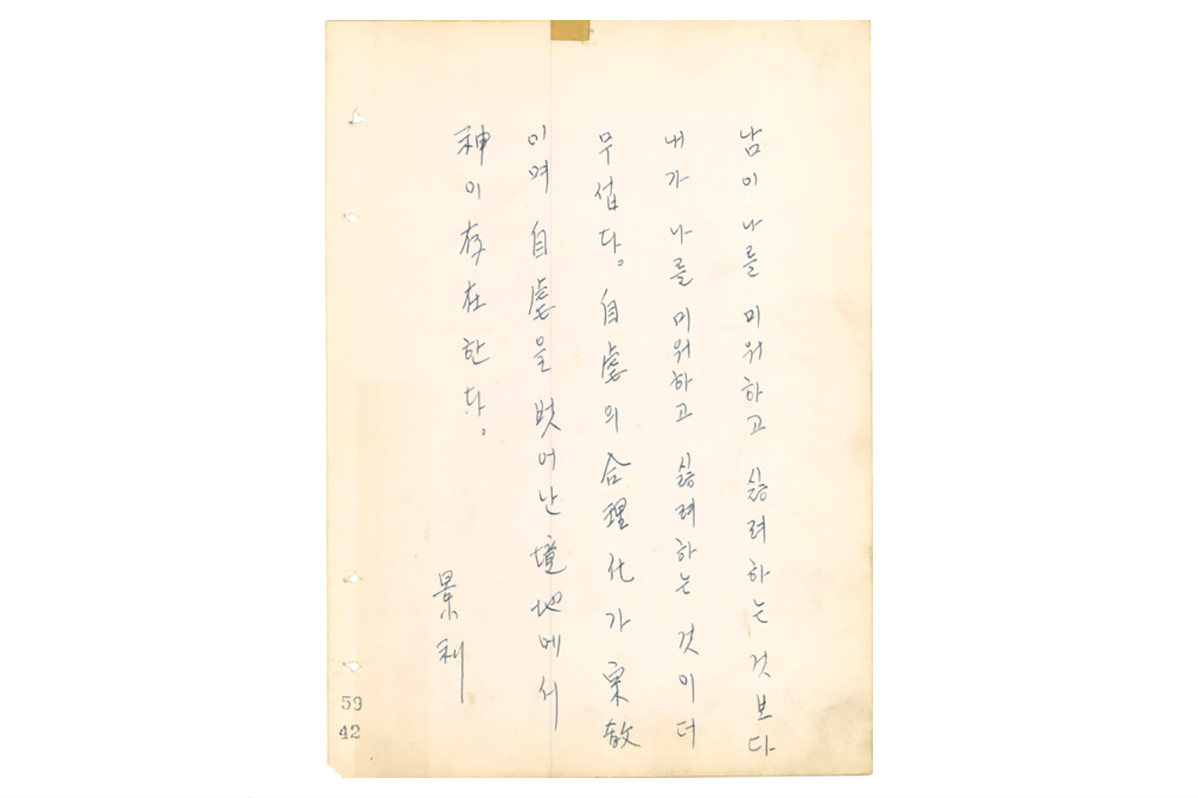 남이 나를 미워하고 싫려하는 것보다
내가 나를 미워하고 싫려하는 것이 더
무섭다. 自虐의 合理化가 宗敎
이며 自虐을 벗어난 境地에서
神이 存在한다.
景利
59
42